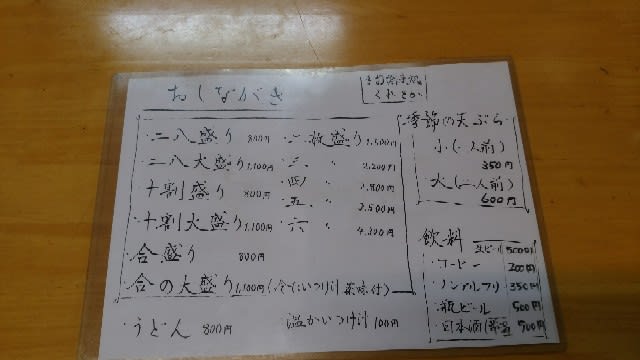 おしながき
二八盛り 800円
二八大盛り 1,100円
十割盛り 800円
十割大盛り 1,100円
合盛り 800円
合の大盛り 1,100円
うどん 800円
二枚盛り 1,500円
三 〃 2,200円
四 〃 2,800円
五 〃 3,500円
六 〃 4,200円
温かいつけ汁 100円
季節の天ぷら
小(一人前)
350円
大(二人前)
600円
飲料
生ビール 500円
コーヒー 200円
ノンアルコール 350円
瓶ビール 500円
日本酒